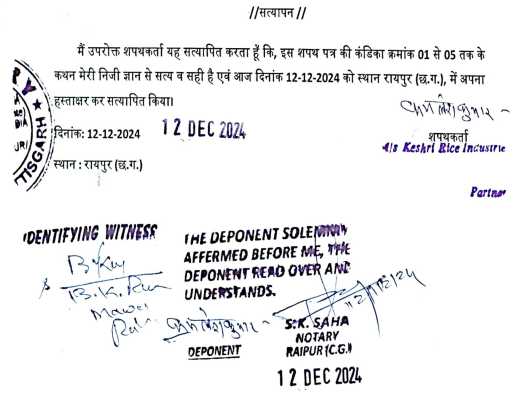 //सत्यापन //
मैं उपरोक्त शपथकर्ता यह सत्यापित करता हूँ कि, इस शपथ पत्र की कंडिका क्रमांक 01 से 05 तक के
कथन मेरी निजी ज्ञान से सत्य व सही है एवं आज दिनांक 12-12-2024 को स्थान रायपुर (छ.ग.), में अपना
हस्ताक्षर कर सत्यापित किया।
दिनांक: 12-12-2024
12 DEC 2024
शपथकर्ता
Keshri Rice Industrie
स्थान : रायपुर (छ.ग.)
TISGARH
Partner
IDENTIFYING WITNESS
THE DEPONENT SOLEMNLY
AFFERMED BEFORE ME, THE
DEPONENT READ OVER AND
UNDERSTANDS.
B.K.
DEPONENT
12/12/24
S.K. SAHA
NOTARY
RAIPUR (C.G.)
12 DEC 2024